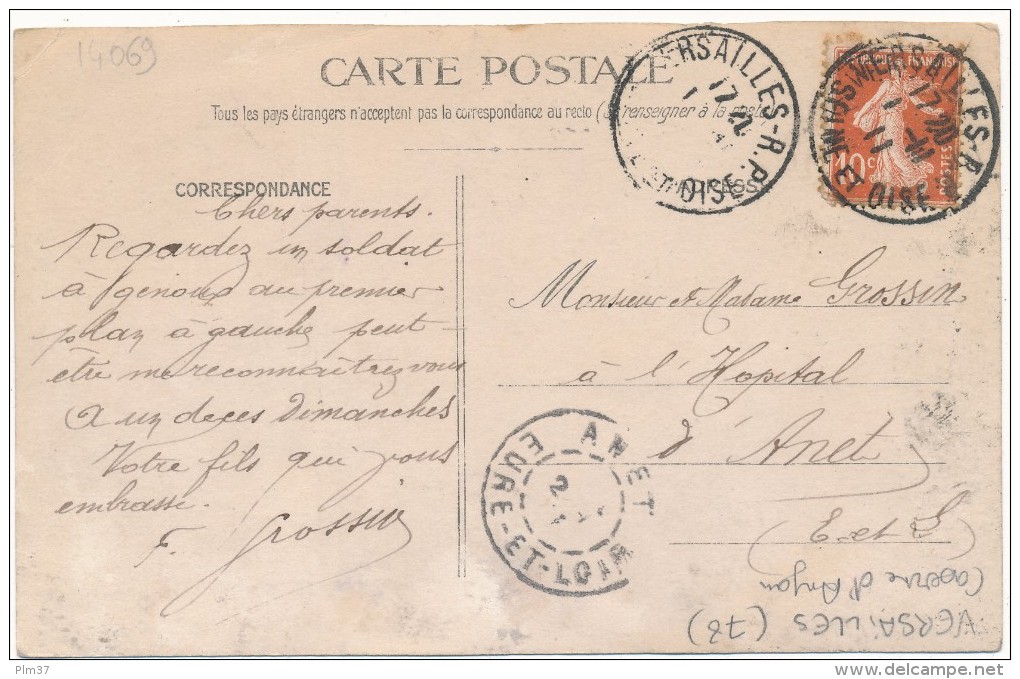 14069
CARTE POSTALE
Tous les pays étrangers n'acceptent pas la correspondance au recto (Se renseigner à la poste)
CORRESPONDANCE
Chers parents.
Regardez un soldat
à genoux au premier
plan à gauche peut-
être me reconnaîtrez vous
A un de ces Dimanches
Votre fils qui vous
embrasse.
F. Grossin
VERSAILLES-R.P.
17
OISE
VERSAILLES-R.P.
SEINE ET OISE
17
11
FRANÇAISE
POSTES
10c
Monsieur et Madame Grossin
à l'Hopital
d'Anet
E-et L
ANET
EURE-ET-LOIR
2
Caserne d'Anjou
VERSAILLES (78)
Plm37
www.delcampe.net